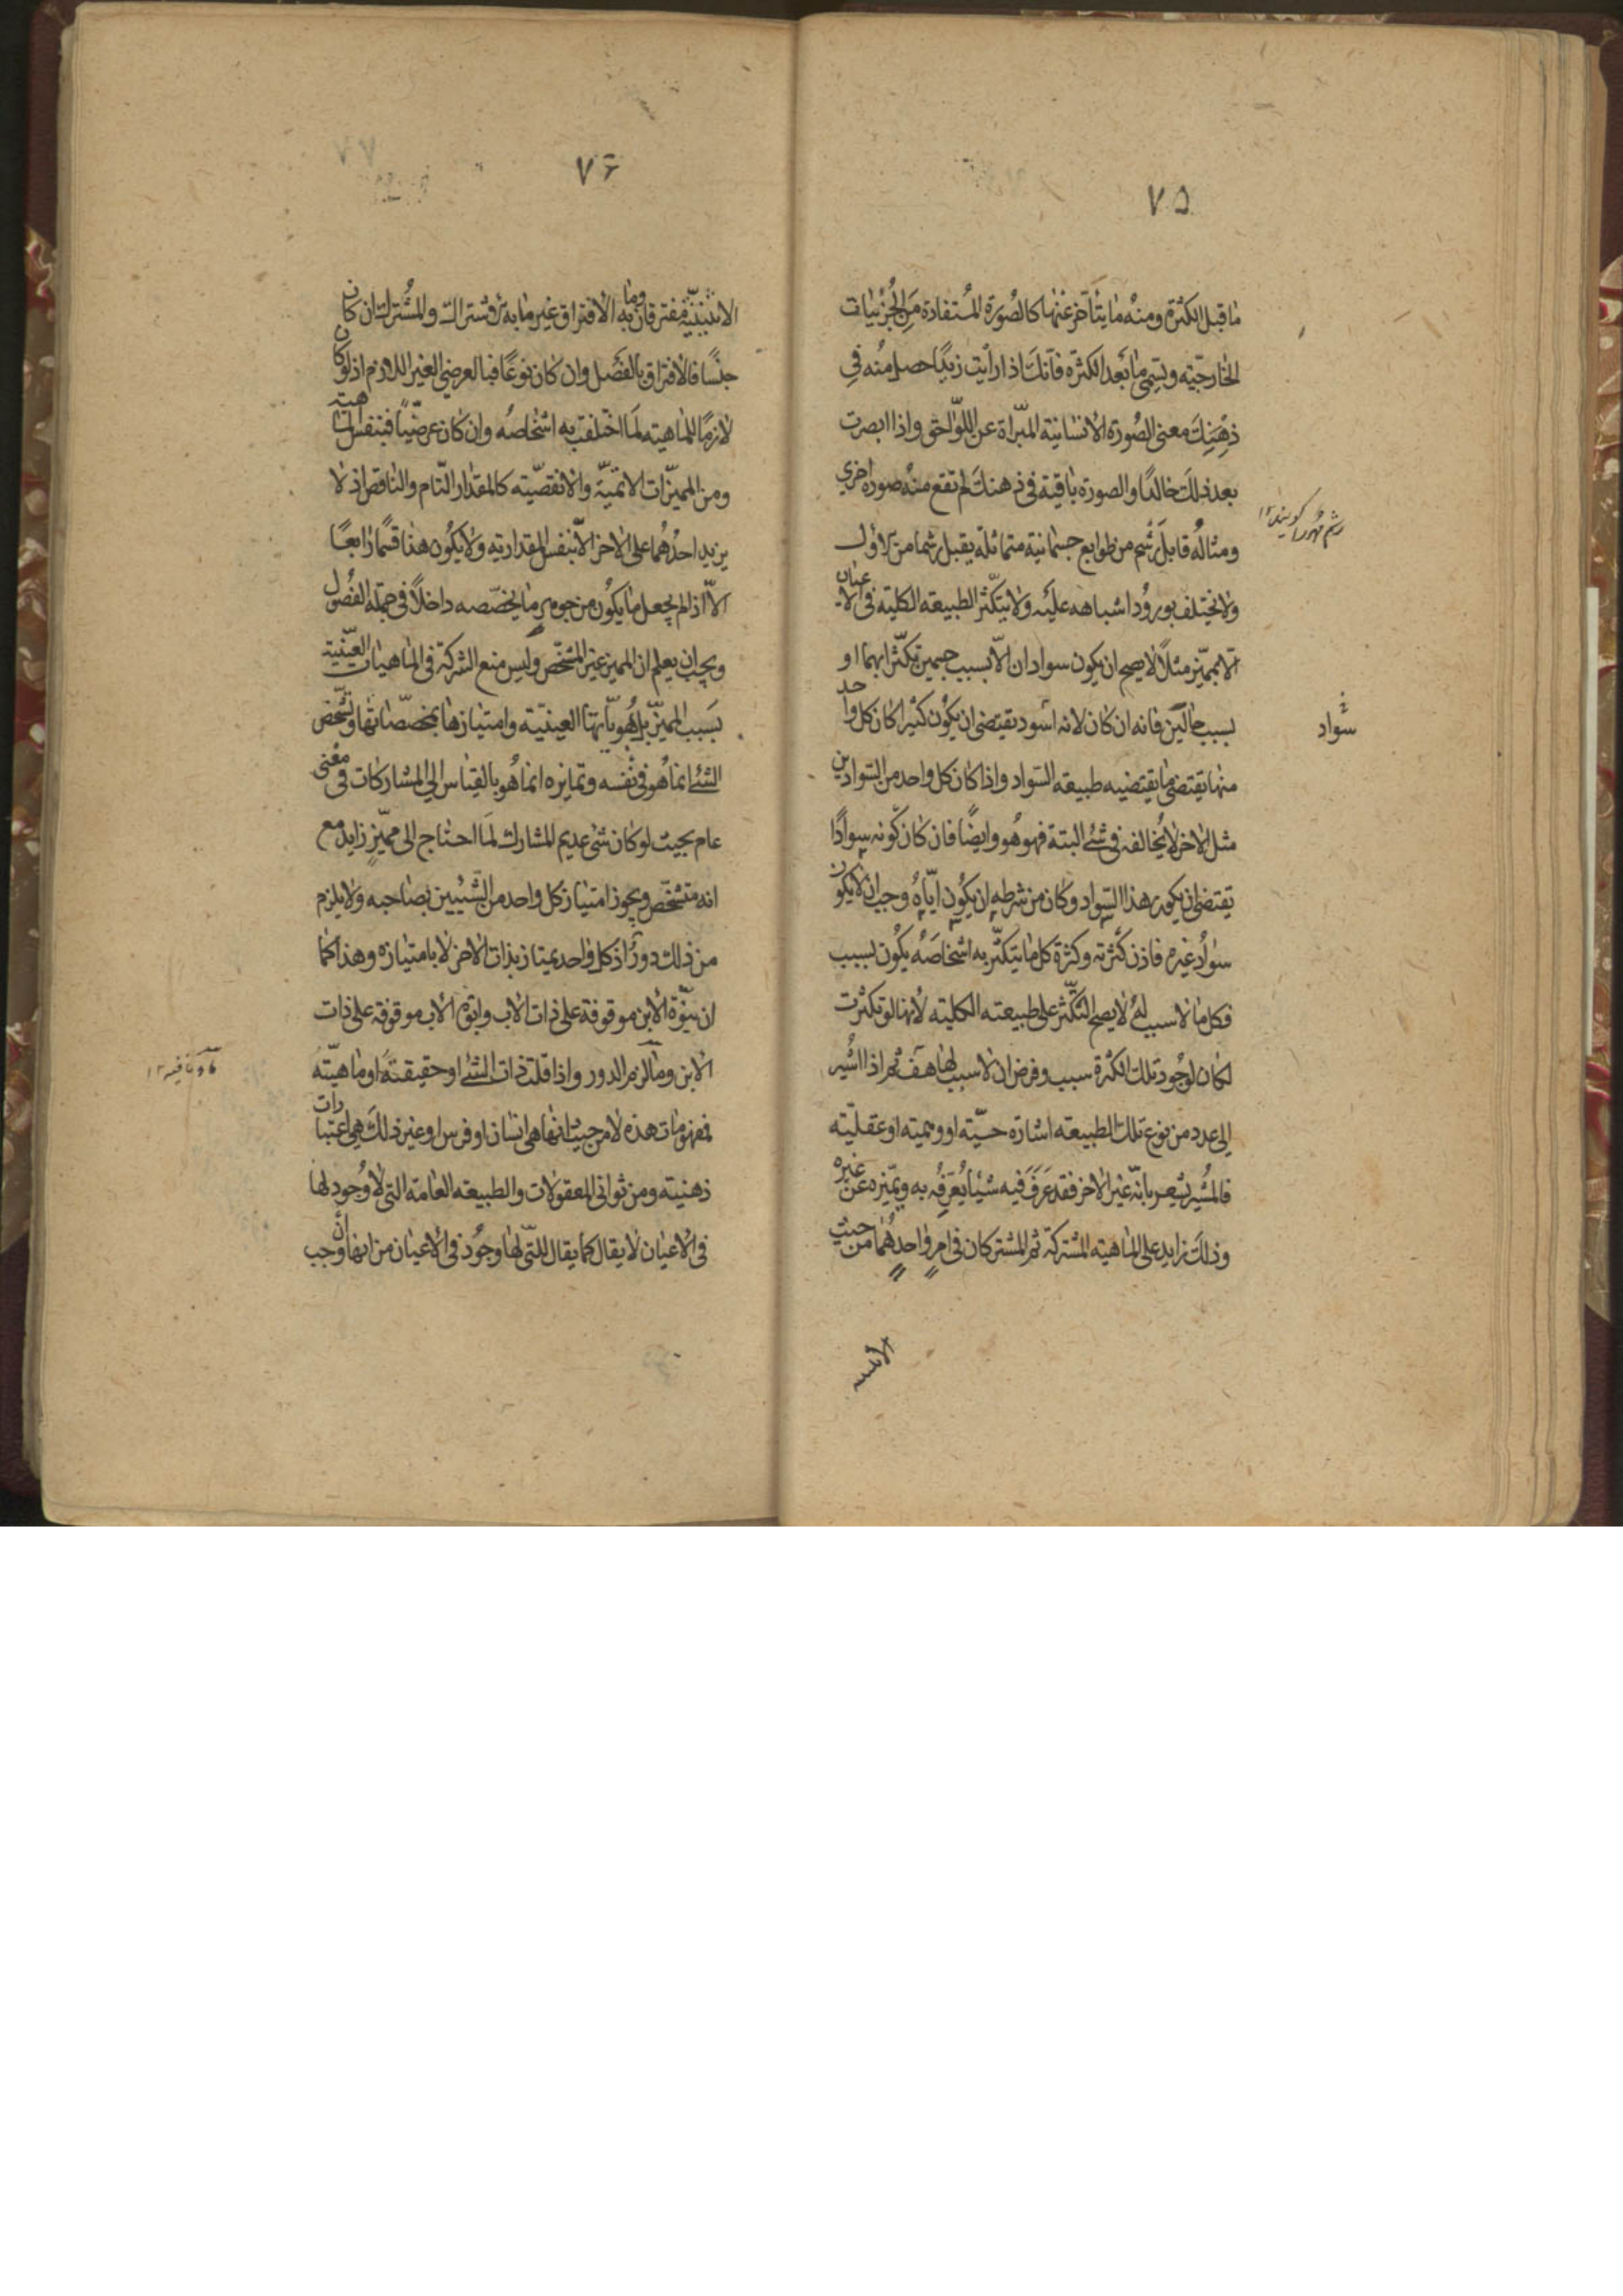 ٧٥
ما قبل الكثرة ومنه ما يتأخر عنها كالصورة المستفادة من الجزئيات
الخارجية ويسمى ما بعد الكثرة فانك اذا رأيت زيدا حصل منه في
ذهنك معنى الصورة الانسانية المبراة عن اللواحق واذا ابصرت
بعد ذلك خالدا والصورة باقية في ذهنك لم تقع منه صورة اخرى
ومثاله قابل رشم من طوابع جسمانية متماثلة يقبل رشما من الاول
ولا يختلف بورود اشباهه عليه ولا يتكثر الطبيعة الكلية في الاعيان
الا بمميز مثلا لا يصح ان يكون سوادان الا بسبب جسمين تكثرا بهما او
بسبب حالين فانه ان كان لانه اسود يقتضى ان يكون كثيرا كان كل واحد
منها يقتضى ما يقتضيه طبيعة السواد واذا كان كل واحد من السوادين
مثل الاخر لا يخالفه في شئ البتة فهو هو وايضا فان كان كونه سوادا
يقتضى ان يكون هذا السواد وكان من شرطه ان يكون اياه وجب ان لا يكون
سواد غيره فاذن كثرته وكثرة كل ما يتكثر به اشخاصه يكون بسبب
فكل ما لا سبب له لا يصح التكثر على طبيعته الكلية لانها لو تكثرت
لكان لوجود تلك الكثرة سبب وفرض ان لا سبب لها هف ثم اذا اشير
الى عدد من نوع تلك الطبيعة اشارة حسية او وهمية او عقلية
فالمشير يشعر بانه غير الاخر فقد عرف فيه شيئا يعرفه به ويميزه عن غيره
وذلك زايد على الماهية المشتركة ثم المشتركان في امر واحد هما من حيث
رشم مهر را كويند ١٢
سواد
٧۶
الاثنينية مفترقان وما به الافتراق غير ما به الاشتراك والمشترك ان كان
جنسا فالافتراق بالفصل وان كان نوعا فبالعرضي الغير اللازم اذ لو كان
لازما للماهية لما اختلفت به اشخاصه وان كان عرضيا فبنفس الماهية
ومن المميزات الاتمية والانقصية كالمقدار التام والناقص اذ لا
يزيد احدهما على الاخر الا بنفس المقدارية ولا يكون هذا قسما رابعا
الا اذا لم يجعل ما يكون من جوهر ما يخصصه داخلا في جملة الفصول
ويجب ان يعلم ان المميز غير المشخص وليس منع الشركة في الماهيات العينية
بسبب المميز بل هوياتها العينية وامتيازها بمخصصاتها وتشخص
الشئ انما هو في نفسه وتمايزه انما هو بالقياس الى المشاركات في معنى
عام بحيث لو كان شئ عديم المشارك لما احتاج الى مميز زايد مع
انه متشخص ويجوز امتياز كل واحد من الشيئين بصاحبه ولا يلزم
من ذلك دور اذ كل واحد يمتاز بذات الاخر لا بامتيازه وهذا كما
ان بنوة الابن موقوفة على ذات الاب وابوة الاب موقوفة على ذات
الابن وما لزم الدور واذا قلت ذات الشئ او حقيقته او ماهيته
فمفهومات هذه لا من حيث انها هي انسان او فرس او غير ذلك هي اعتبارات
ذهنية ومن ثوانى المعقولات والطبيعة العامة التى لا وجود لها
في الاعيان لا يقال كما يقال للتى لها وجود في الاعيان من انها وجب ان
ما نافيه ١٢